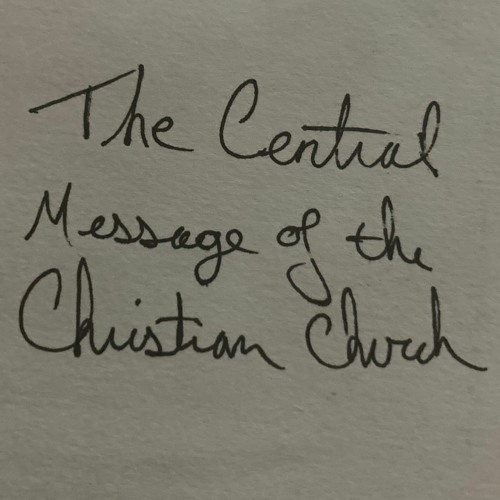 The Central
Message of the
Christian Church